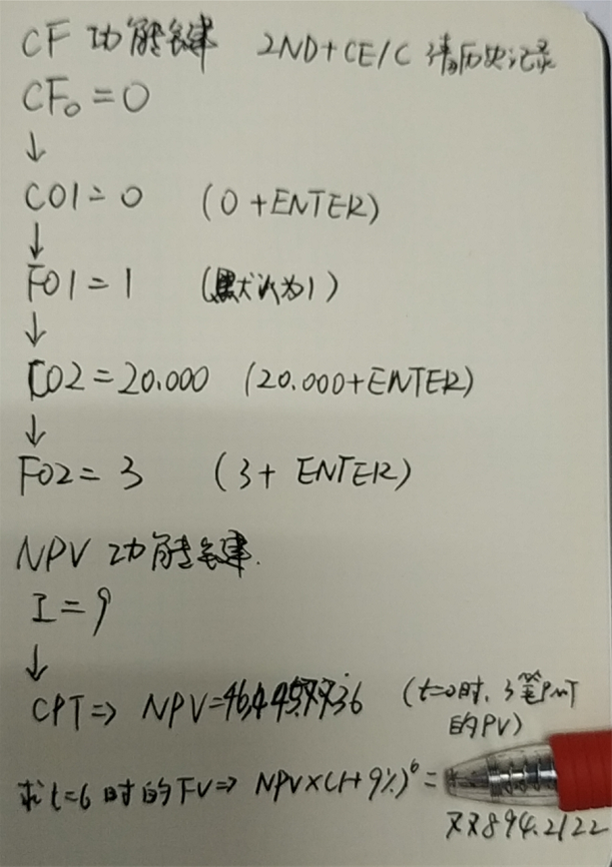 CF 功能键 2ND+CE/C 清历史记录
CF₀=0
↓
C01=0 (0+ENTER)
↓
F01=1 (默认为1)
↓
C02=20.000 (20.000+ENTER)
↓
F02=3 (3+ ENTER)
NPV 功能键.
I=9
↓
CPT=> NPV= (t=0时, 3笔PMT
的PV)
求t=6时的FV=> NPV×(1+9%)⁶=
77894.2122